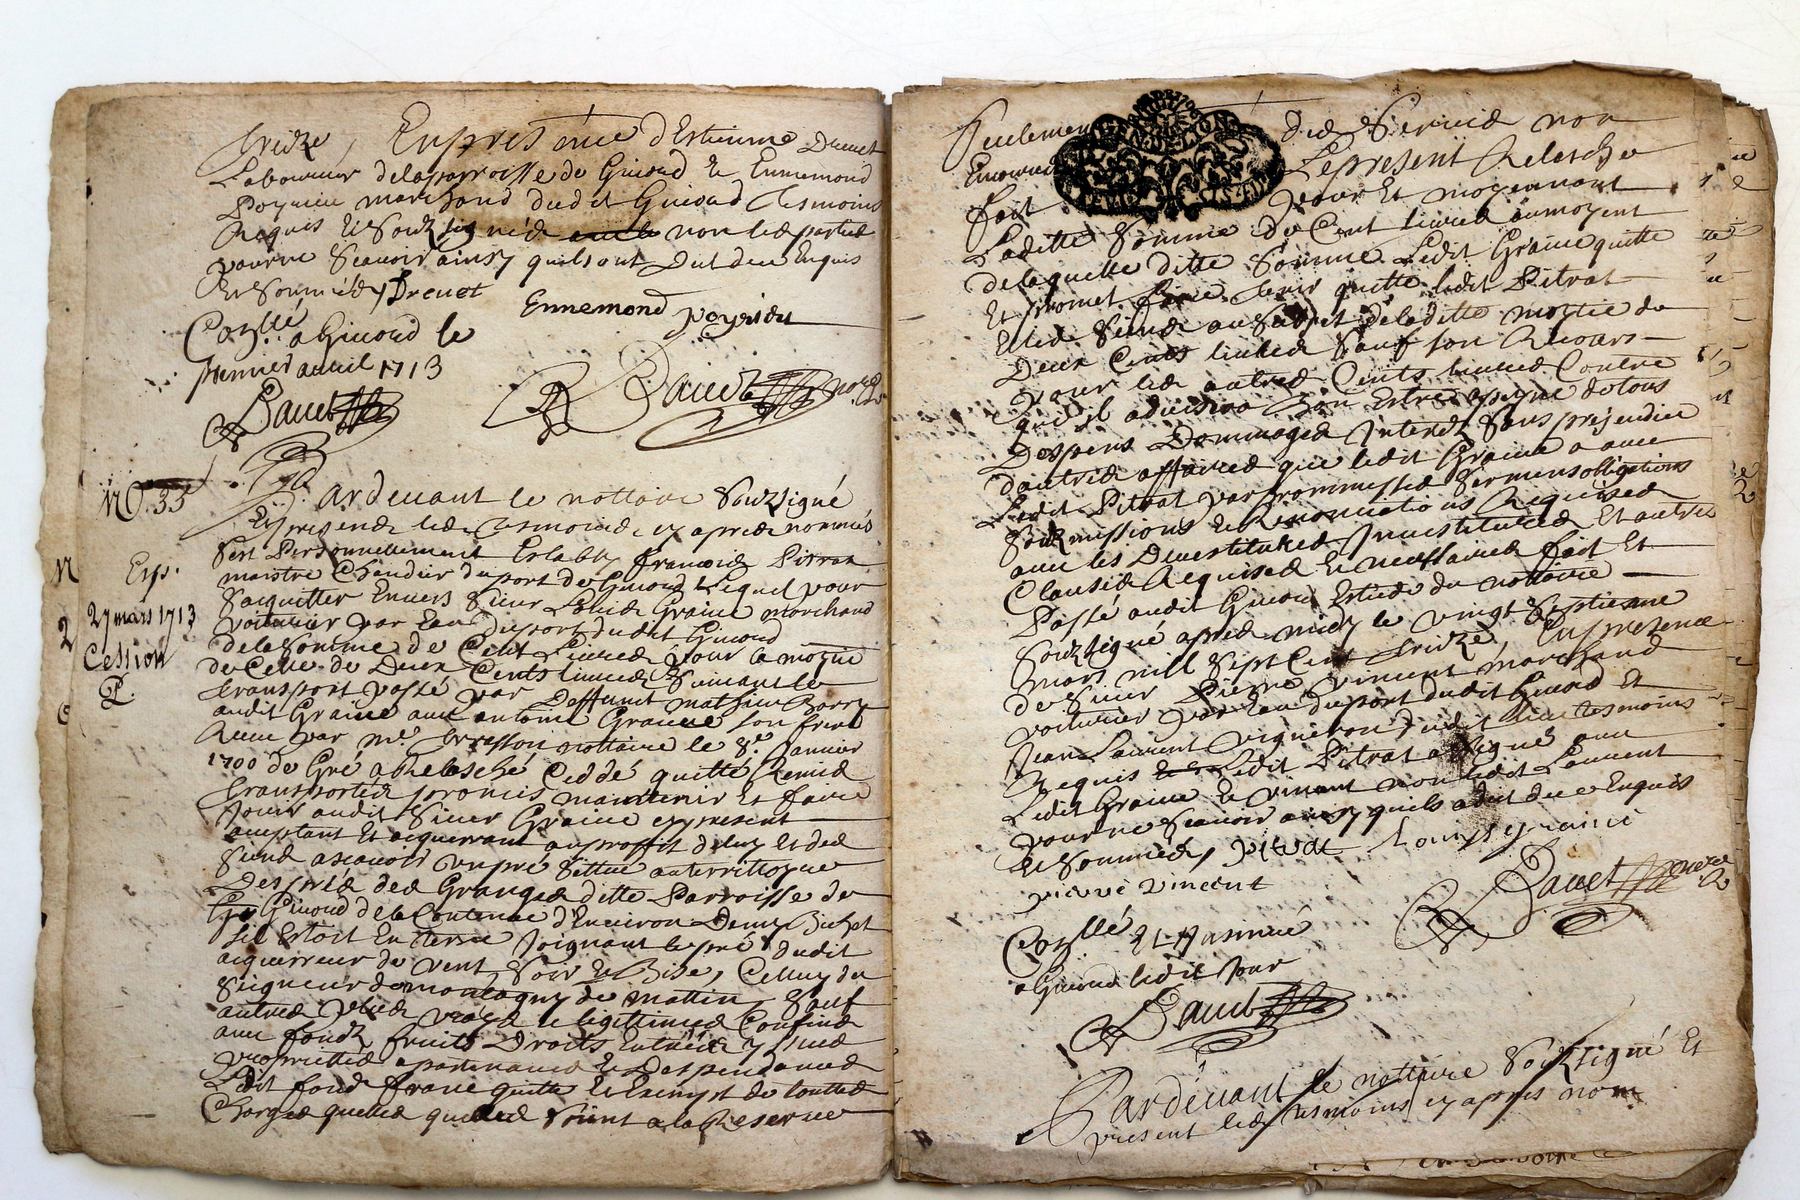 treize, En presence d'Estienne Drevet
Laboureur de la parroisse de Givord & Ennemond
marchand dudit Givord tesmoins
Requis & Soubzsignéd non led parties
pour ne Scavoir ainsy quils ont dit de ce Enquis
Et Sommed Drevet
Ennemond peyrieu
Cozllé a Givord le
premier avril 1713
Bauet
Bauet nore
No. 35
Exp.
27 mars 1713
Cession
Pardevant le nottaire Soubzsigné
Et presend led tesmoind cy apred nommés
Sest Personnellement Estably francoid Pitrat
maistre Chendier du port de Givord Lequel pour
Sacquitter Envers Sieur Louid Graine marchand
voiturier par Eau du port dudit Givord
de la Somme de Cent Livred pour la moytie
de Celle de Deux Cents livred Suivant le
transport passé par Deffunct mathieu
audit Graine avec antoine Graine son frere
Receu par me. nottaire le 8e. Janvier
1700 de Gré a Relasché Ceddé quitté Remid
transported promis maintenir Et faire
Jouir audit Sieur Graine cy present
acceptant Et acquerrant au proffit de luy Et ded
Siend ascavoir un pré Sittue au territtoyre
Des pred ded Granged ditte Parroisse de
Givord de la Contenue d'Environ Demy Bichet
sil Estoit En terre Joignant le pré dudit
acquerreur de vent Soir & Bise, Celluy du
Seigneur de montagny de mattin, Sauf
autred plud vrayd & legittimed Confind
avec fondz fruits Droits Entréed yssued
proprietted apartenanced & Despendanced
Ledit fond franc quitte & Exempt de touted
Charged quelled quelled Soient a la Reserve
Seulement ded Servid non
Le present Relasche
fait pour Et moyennant
Laditte Somme de Cent livred au moyent
de laquelle ditte Somme Ledit Graine quitte
Et promet faire tenir quitte ledit Pitrat
Et led Siend au Subjet de laditte moytie de
Deux Cents livred Sauf son Recours
pour led autred Cents livred Contre
qu'il advisera bon Estre a peyne de tous
Despens Dommaged Interetz Sans prejendice
dautred affaired que ledit Graine a avec
Ledit Pitrat par prommessed Sermens obligations
Soubmissions & Renonciations Requised
avec les Devestitured Investitured Et autres
Claused Requised & necessaired fait Et
Passé audit Givord Estude du nottaire
Soubzsigné apred midy le vingt Septiesme
mars mill Sept Cent treize, En presence
de Sieur Pierre vincent marchand
voiturier par Eau du port dudit Givord Et
Jean Laurent vigneron dudit lieu tesmoins
Requis Ledit Pitrat a Signé avec
Ledit Graine & vincent non ledit Laurent
pour ne Scavoir ainsy quils a dit de ce Enquis
Et Sommed, pitrat Louys graine
pierre vincent
Bauet nore
Cozllé Et
a Givord ledit Jour
Bauet
Pardevant le nottaire Soubzsigné Et
present led tesmoins cy apres nom